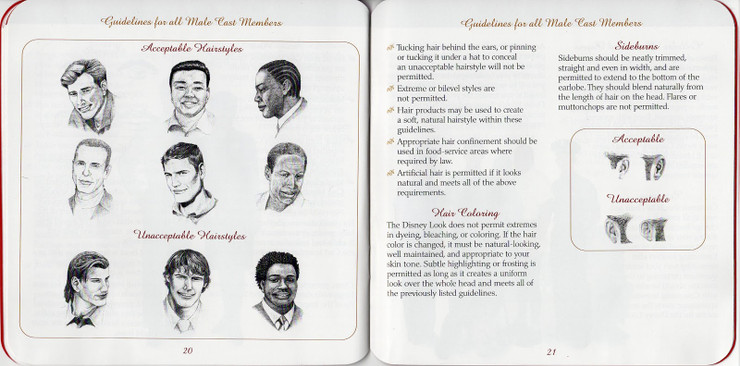 Guidelines for all Male Cast Members
Acceptable Hairstyles
Unacceptable Hairstyles
20
Guidelines for all Male Cast Members
Tucking hair behind the ears, or pinning
or tucking it under a hat to conceal
an unacceptable hairstyle will not be
permitted.
Extreme or bilevel styles are
not permitted.
Hair products may be used to create
a soft, natural hairstyle within these
guidelines.
Appropriate hair confinement should be
used in food-service areas where
required by law.
Artificial hair is permitted if it looks
natural and meets all of the above
requirements.
Hair Coloring
The Disney Look does not permit extremes
in dyeing, bleaching, or coloring. If the hair
color is changed, it must be natural-looking,
well maintained, and appropriate to your
skin tone. Subtle highlighting or frosting is
permitted as long as it creates a uniform
look over the whole head and meets all of
the previously listed guidelines.
Sideburns
Sideburns should be neatly trimmed,
straight and even in width, and are
permitted to extend to the bottom of the
earlobe. They should blend naturally from
the length of hair on the head. Flares or
muttonchops are not permitted.
Acceptable
Unacceptable
21